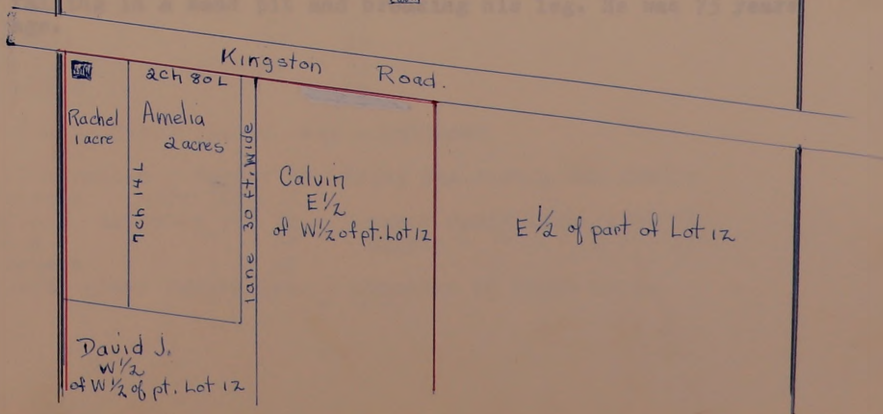 Kingston Road.
2ch 80L
Rachel
1 acre
Amelia
2 acres
7ch 14 L
lane 30 ft. wide
Calvin
E 1/2
of W 1/2 of pt. Lot 12
E 1/2 of part of Lot 12
David J.
W 1/2
of W 1/2 of pt. Lot 12